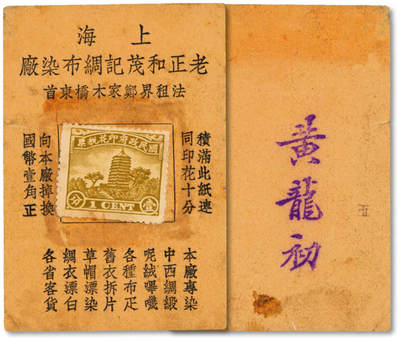 上海
老正和茂記綢布染廠
法租界鄭家木橋東首
積滿此紙連
同印花十分
向本廠掉換
國幣壹角正
國民政府印花稅票
壹分
1 CENT
本廠專染
中西綢緞
呢絨嗶嘰
各種布疋
舊衣拆片
草帽漂染
綢衣漂白
各省客貨
黃龍初